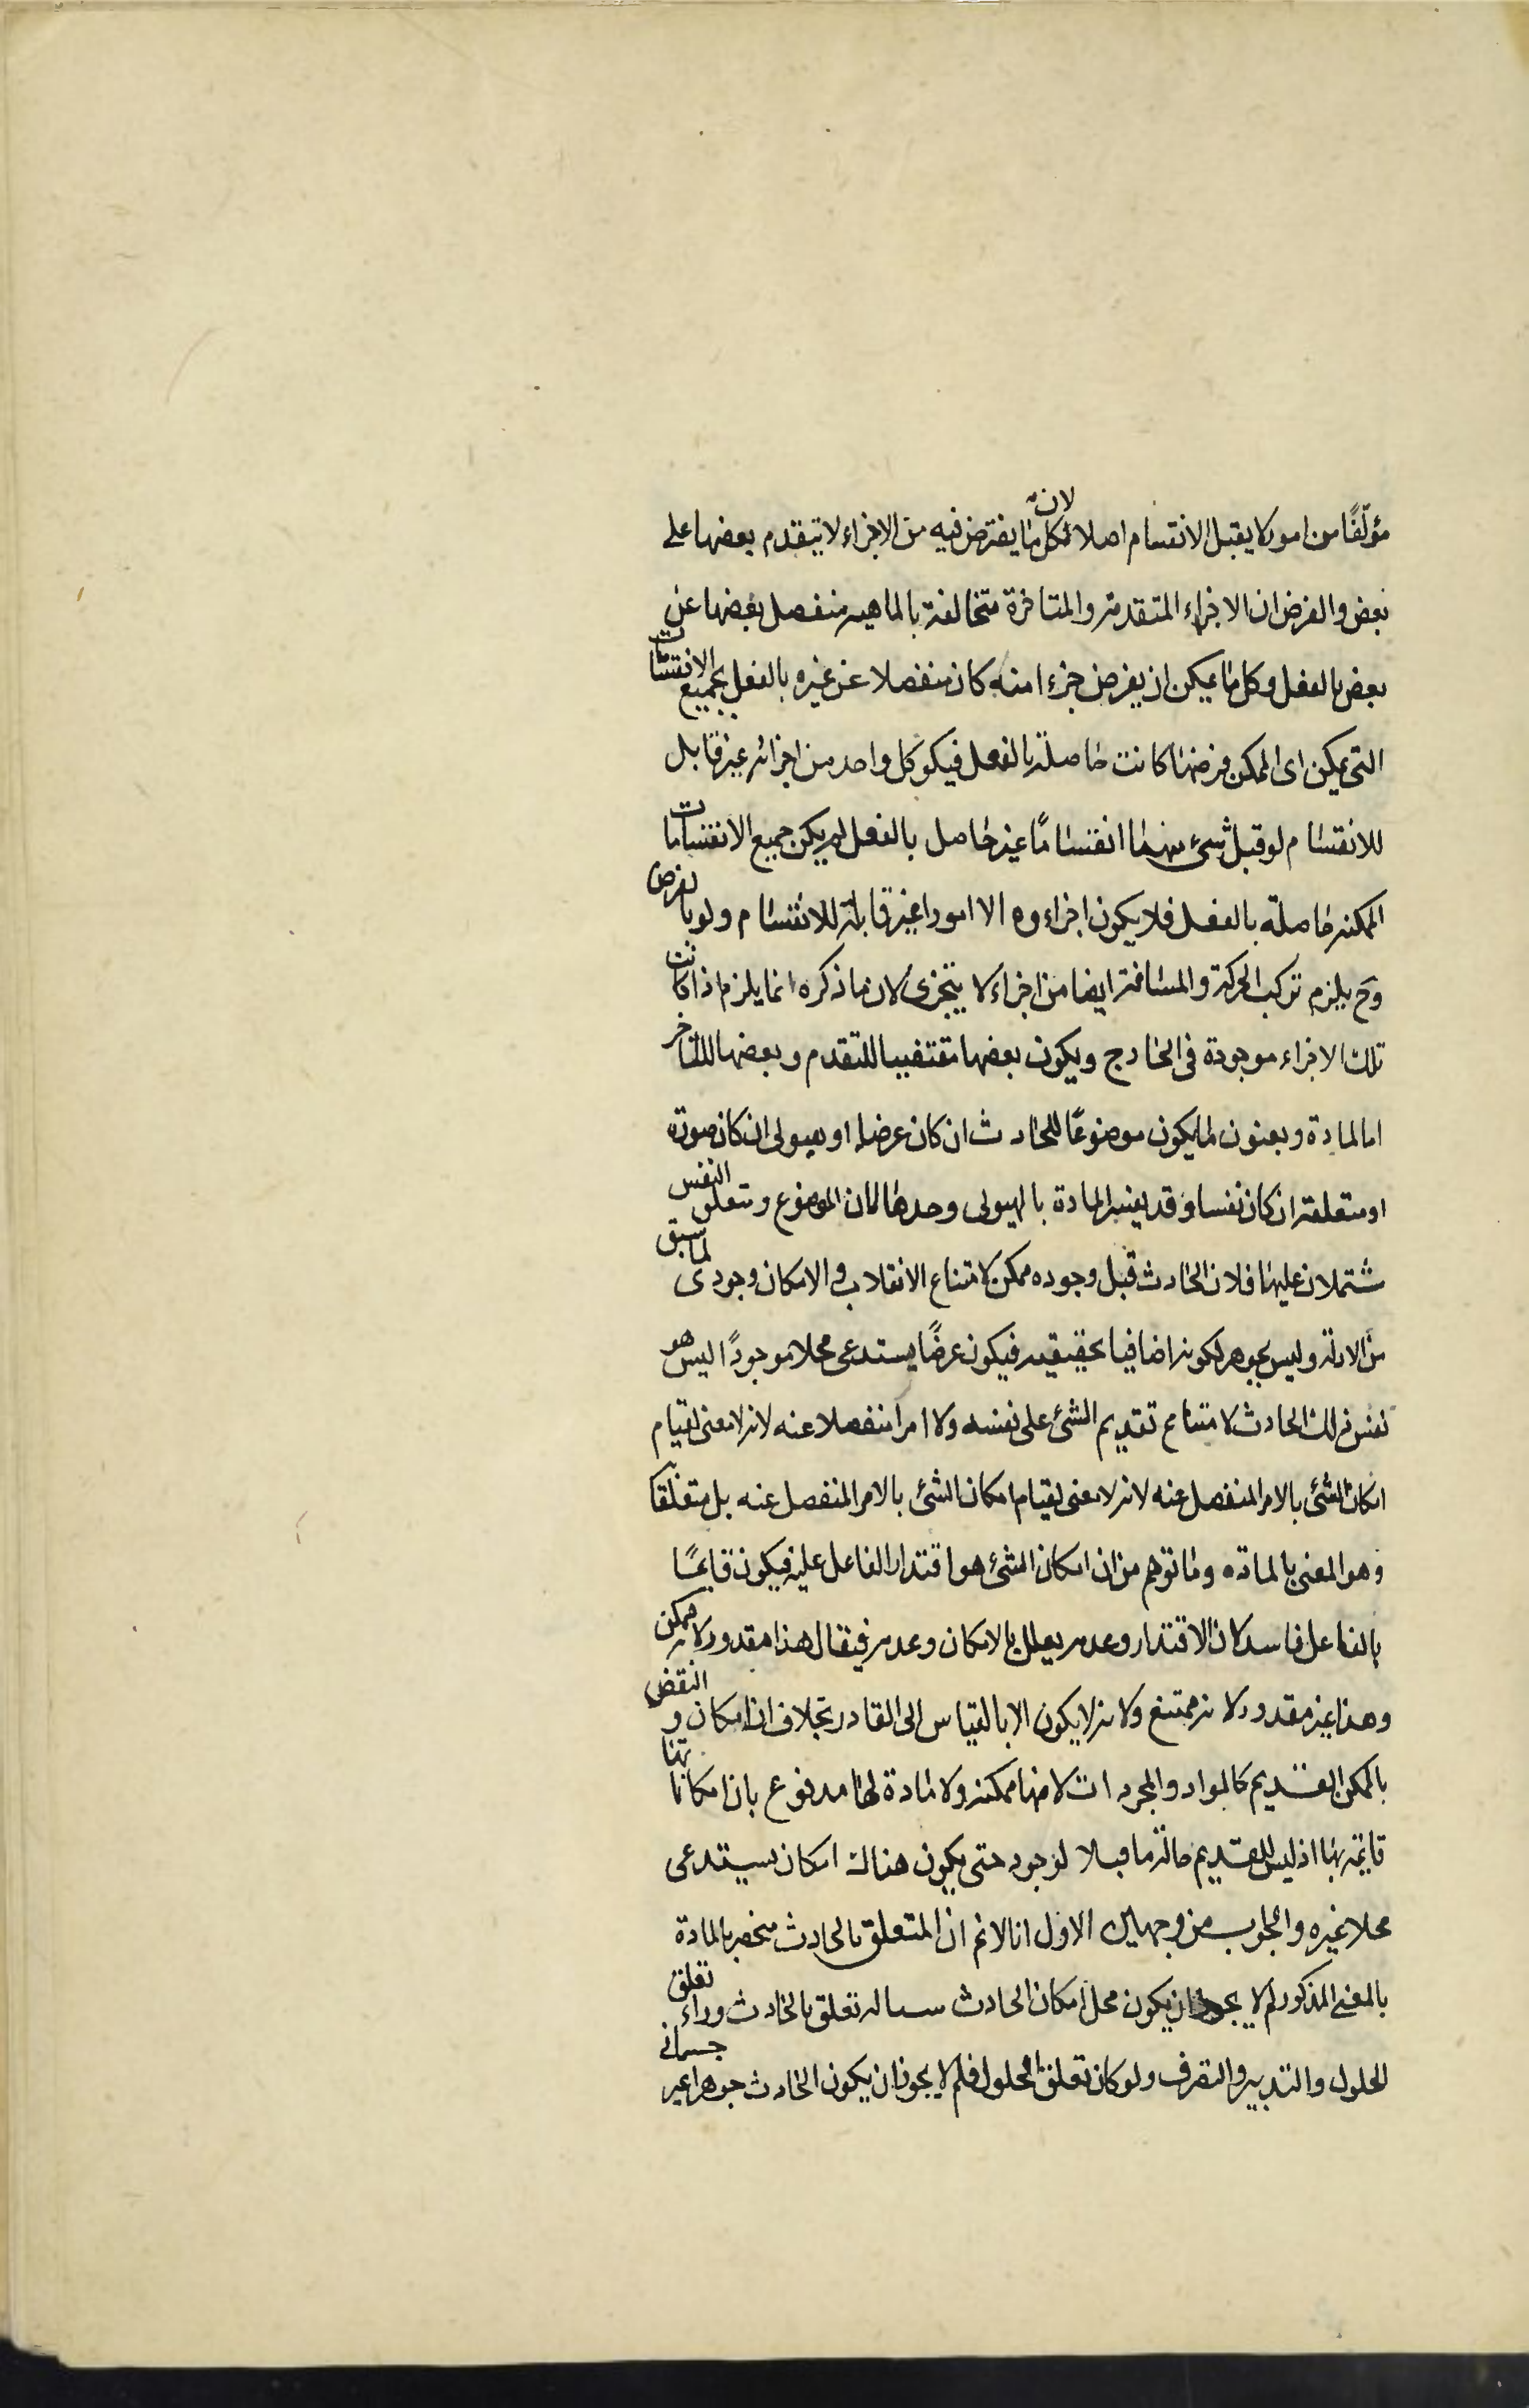 مؤلّفًا من امور لا يقبل الانقسام اصلا لان كل ما يفترض فيه من الاجزاء لا يتقدم بعضها على
بعض والفرض ان الاجزاء المتقدمة والمتاخرة متخالفة بالماهيه منفصل بعضها عن
بعض بالفعل وكل ما يمكن ان يفرض جزءا منه كان منفصلا عن غيره بالفعل فجميع الانقسامات
التى يمكن اى الممكن فرضها كانت حاصلة بالفعل فيكون كل واحد من اجزائه غير قابل
للانقسام لو قبل شئ منها انقسامًا غير حاصل بالفعل لم يكن جميع الانقسامات
الممكنه حاصلة بالفعل فلا يكون اجزاءوه الا امورا غير قابلة للانقسام ولو بالفرض
وح يلزم تركب الحركة والمسافة ايضا من اجزاء لا يتجزى لان ما ذكره انما يلزم اذا كانت
تلك الاجزاء موجودة فى الخارج ويكون بعضها مقتضيا للتقدم وبعضها للتاخر
اما المادة ويعنون لما يكون موضوعًا للحادث ان كان عرضا او هيولى ان كان صورة
او متعلقة ان كان نفسا وقد يفسر المادة بالهيولى وحدها لان الموضوع ومتعلق النفس
مشتملان عليها فلان الحادث قبل وجوده ممكن لامتناع الانقلاب والامكان وجودى لما سبق
من الادلة وليس بجوهر لكونه اضافيا بحقيقته فيكون عرضًا يستدعى محلا موجودًا ليس هو
نفس ذلك الحادث لامتناع تقديم الشئ على نفسه ولا امرا منفصلا عنه لانه لا معنى لقيام
امكان الشئ بالامر المنفصل عنه لانه لا معنى لقيام امكان الشئ بالامر المنفصل عنه بل متعلقا
وهو المعنى بالمادة وما توهم من ان امكان الشئ هو اقتدار الفاعل عليه فيكون قايمًا
بالفاعل فاسد لان الاقتدار وعدمه يعلل بالامكان وعدمه فيقال هذا مقدور لانه ممكن
وهذا غير مقدور لانه ممتنع ولانه لا يكون الا بالقياس الى القادر بخلاف الامكان والنقض
بالممكن القديم كالمواد والمجردات لانها ممكنه ولا مادة لها مدفوع بان امكاناتها
قايمة بها اذ ليس للقديم حالة ما قبلا لوجود حتى يكون هناك امكان يستدعى
محلا غيره والجواب من وجهين الاول انا لا نم ان المتعلق بالحادث منحصر بالمادة
بالمعنى المذكور لم لا يجوز ان يكون محل امكان الحادث سا له تعلق بالحادث وراء تعلق
الحلول والتدبير والتصرف ولو كان تعلق الحلول فلم لا يجوز ان يكون الحادث جوهرا غير جسمانى